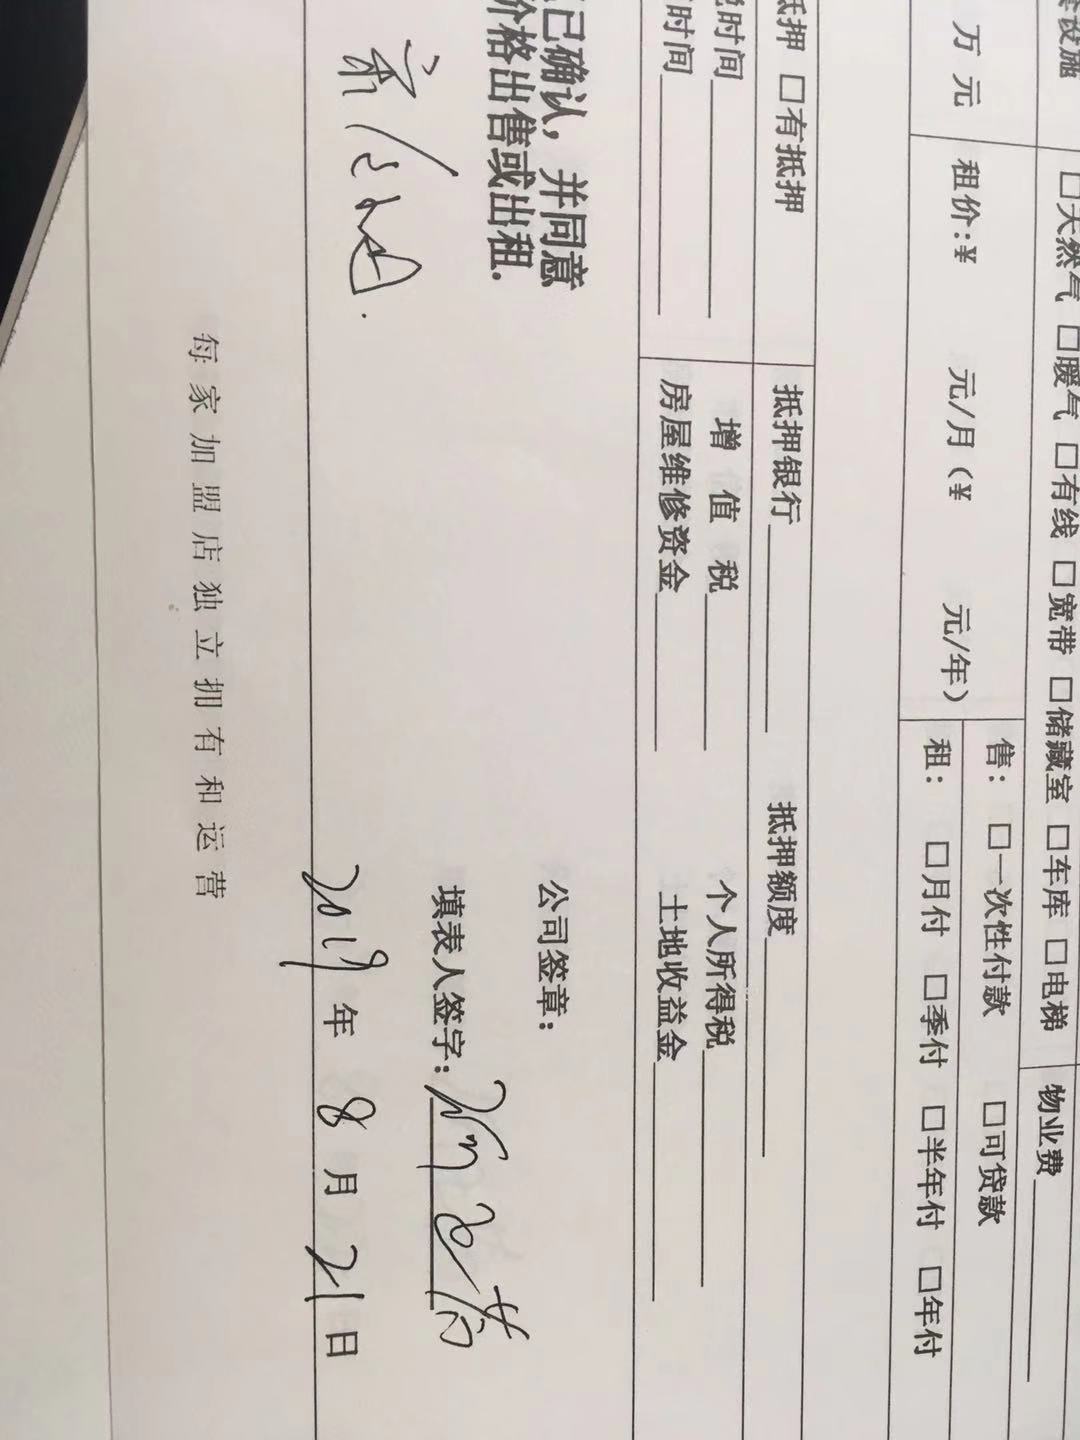 套设施 □天然气 □暖气 □有线 □宽带 □储藏室 □车库 □电梯 物业费
万 元 租价:¥ 元/月(¥ 元/年) 售: □一次性付款 □可贷款
租: □月付 □季付 □半年付 □年付
抵押 □有抵押 抵押银行 抵押额度
税时间 增 值 税 个人所得税
时间 房屋维修资金 土地收益金
已确认，并同意
价格出售或出租.
公司签章:
填表人签字:
2019 年 8 月 21 日
每家加盟店独立拥有和运营